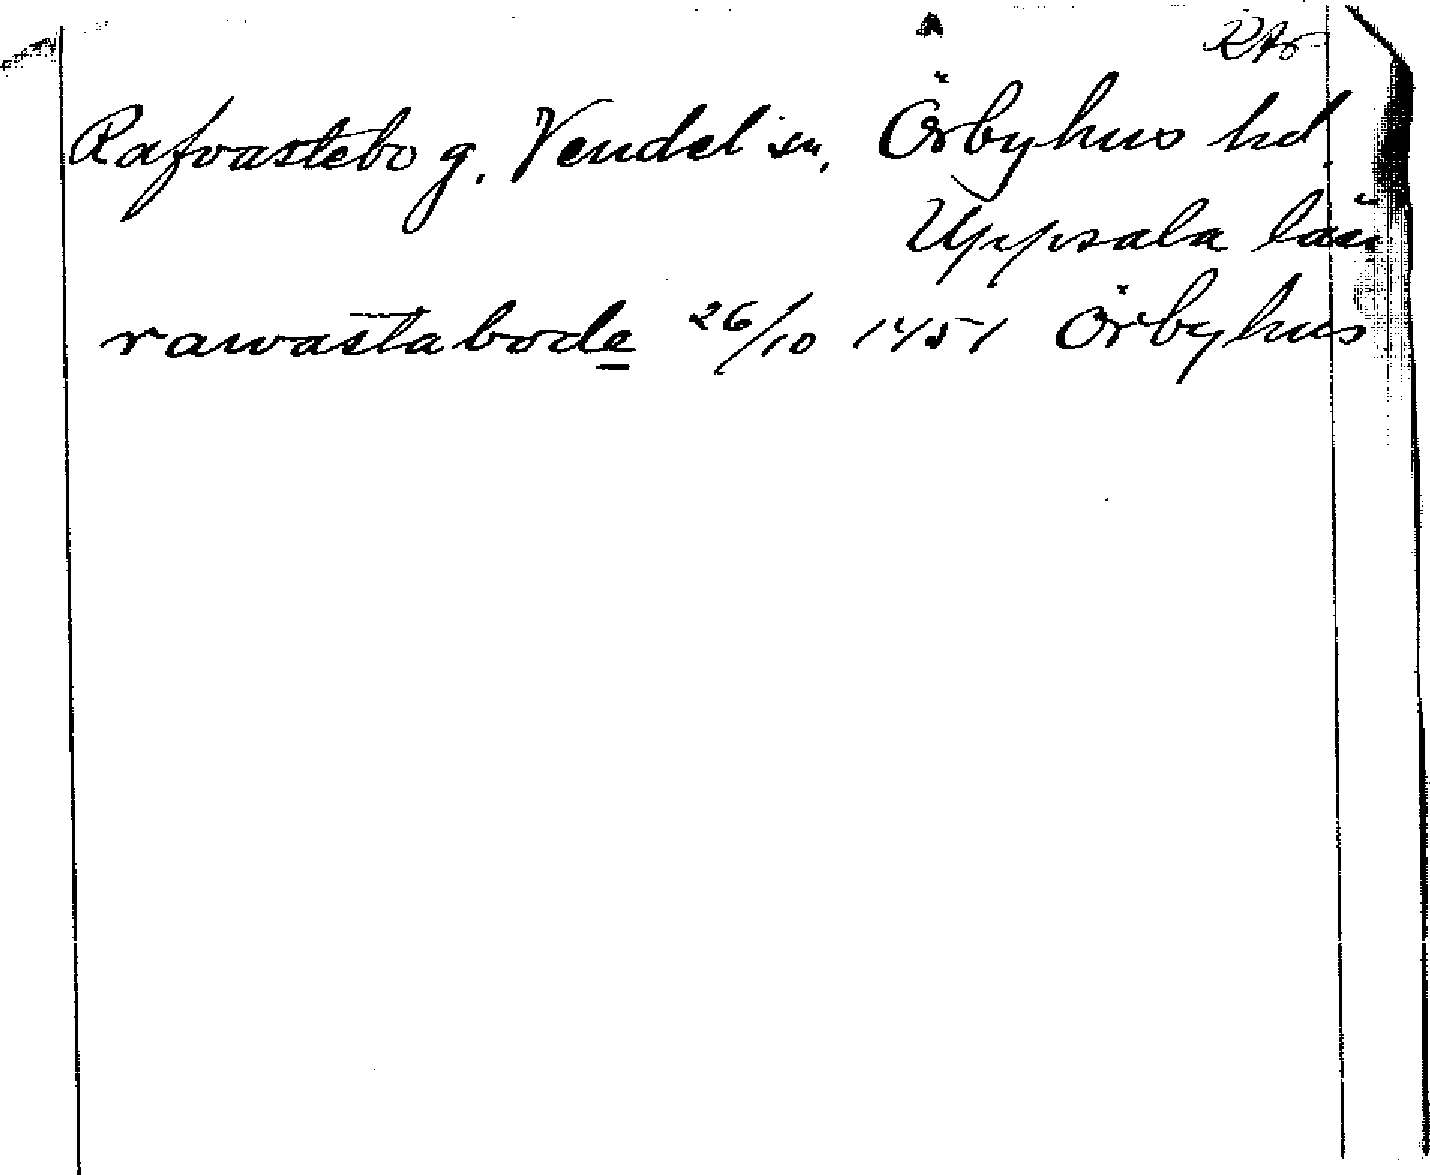 Rafvastebo g. Vendel sn, Örbyhus hd.
Uppsala län
rawastabode 26/10 1451 Örbyhus